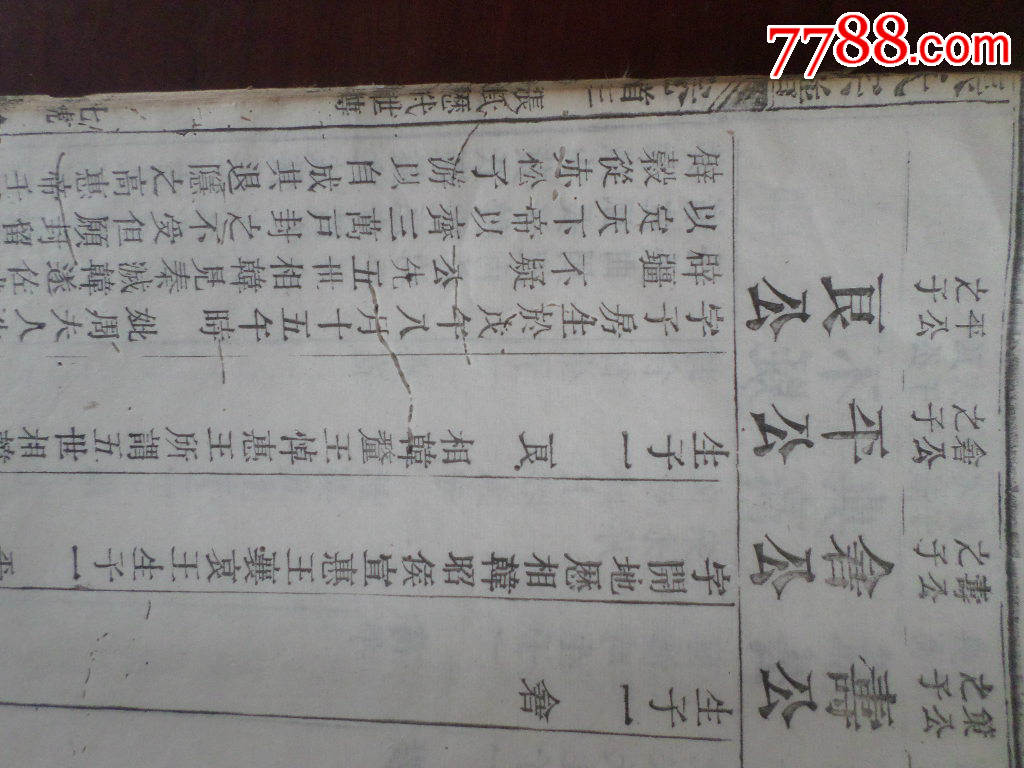 之子
壽公
生子一 龠
壽公之子
龠公
字開地歷相韓昭侯宣惠王襄哀王生子一 平
龠公之子
平公
生子一 良 相韓釐王悼惠王所謂五世相韓
平公之子
良公
字子房生於戊午年八月十五午時 妣周夫人
辟疆不疑 公先五世相韓見秦滅韓遂佐
以定天下帝以齊三萬戶封之不受但願封留
辟穀從赤松子游以自成其退隱之高惠帝
氏宗譜
首三
張氏歷代世
七號
7788.com